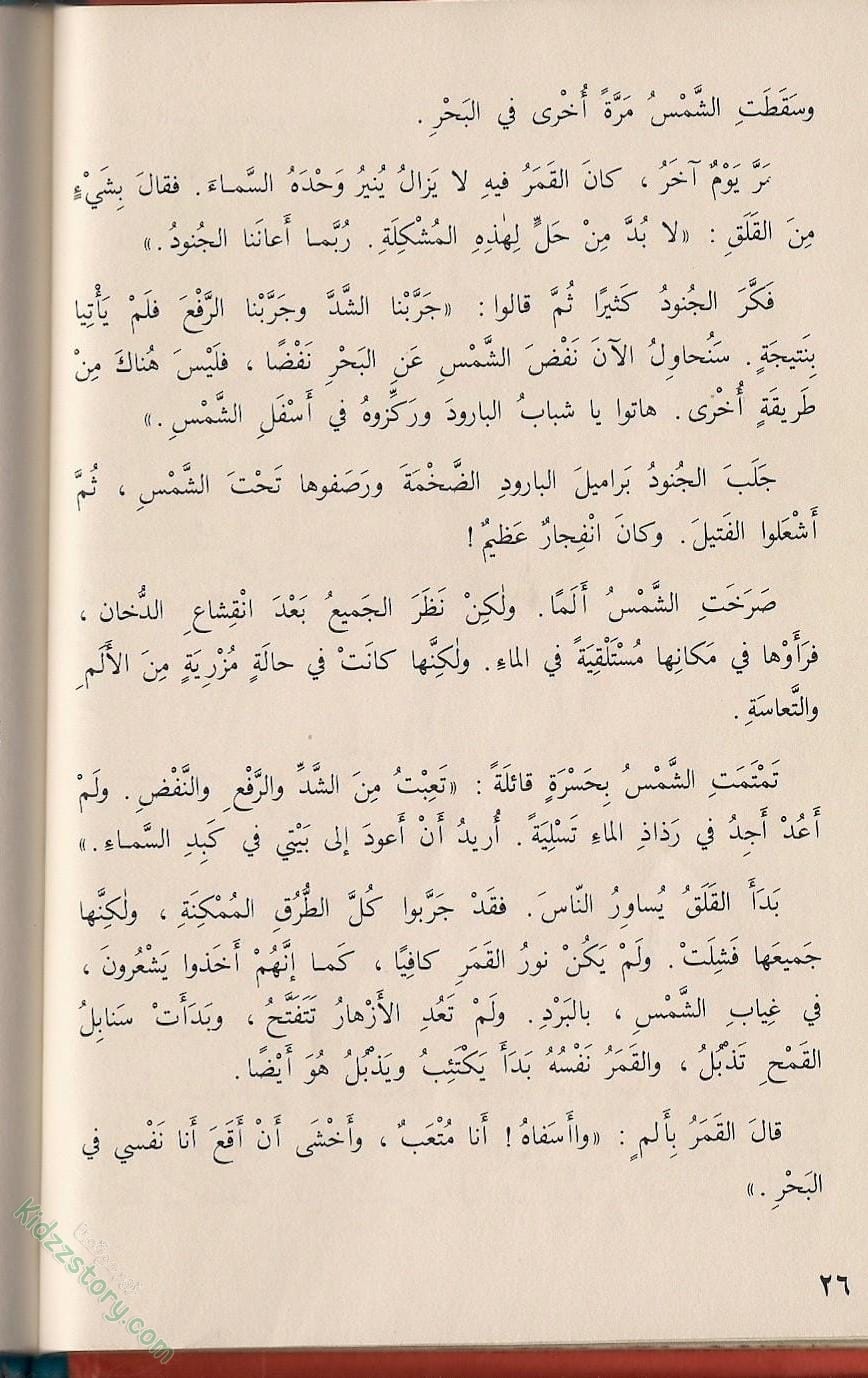 وسَقَطَتِ الشَّمْسُ مَرَّةً أُخْرى في البَحْرِ .
مَرَّ يَوْمٌ آخَرُ ، كانَ القَمَرُ فيهِ لا يَزالُ يُنيرُ وَحْدَهُ السَّماءَ. فقالَ بِشَيْءٍ
مِنَ القَلَقِ : «لا بُدَّ مِنْ حَلٍّ لِهٰذِهِ المُشْكِلَةِ. رُبَّما أَعانَنا الجُنودُ.»
فَكَّرَ الجُنودُ كَثيرًا ثُمَّ قالوا : «جَرَّبْنا الشَّدَّ وجَرَّبْنا الرَّفْعَ فلَمْ يَأْتِيا
بِنَتيجَةٍ. سَنُحاوِلُ الآنَ نَفْضَ الشَّمْسِ عَنِ البَحْرِ نَفْضًا ، فلَيْسَ هُناكَ مِنْ
طَريقَةٍ أُخْرى. هاتوا يا شبابُ البارودَ ورَكِّزوهُ في أَسْفَلِ الشَّمْسِ.»
جَلَبَ الجُنودُ بَراميلَ البارودِ الضَّخْمَةَ ورَصَفوها تَحْتَ الشَّمْسِ ، ثُمَّ
أَشْعَلوا الفَتيلَ. وكانَ انْفِجارٌ عَظيمٌ !
صَرَخَتِ الشَّمْسُ أَلَمًا. ولٰكِنْ نَظَرَ الجَميعُ بَعْدَ انْقِشاعِ الدُّخان ،
فرَأَوْها في مَكانِها مُسْتَلْقِيَةً في الماءِ. ولٰكِنَّها كانَتْ في حالَةٍ مُزْرِيَةٍ مِنَ الأَلَمِ
والتَّعاسَةِ.
تَمْتَمَتِ الشَّمْسُ بِحَسْرَةٍ قائلَةً : «تَعِبْتُ مِنَ الشَّدِّ والرَّفْعِ والنَّفْضِ. ولَمْ
أَعُدْ أَجِدُ في رَذاذِ الماءِ تَسْلِيَةً. أُريدُ أَنْ أَعودَ إلى بَيْتي في كَبِدِ السَّماءِ.»
بَدَأَ القَلَقُ يُساوِرُ النّاسَ. فقَدْ جَرَّبوا كُلَّ الطُّرُقِ المُمْكِنَةِ ، ولٰكِنَّها
جَميعَها فَشِلَتْ. ولَمْ يَكُنْ نورُ القَمَرِ كافِيًا ، كَما إنَّهُمْ أَخَذوا يَشْعُرونَ ،
في غِيابِ الشَّمْسِ ، بالبَرْدِ. ولَمْ تَعُدِ الأَزْهارُ تَتَفَتَّحُ ، وبَدَأَتْ سَنابِلُ
القَمْحِ تَذْبُلُ ، والقَمَرُ نَفْسُهُ بَدَأَ يَكْتَئِبُ ويَذْبُلُ هُوَ أَيْضًا.
قالَ القَمَرُ بِأَلَمٍ : «واأَسَفاهُ ! أَنا مُتْعَبٌ ، وأَخْشَى أَنْ أَقَعَ أَنا نَفْسي في
البَحْرِ.»
٢٦
Kidzzstory.com